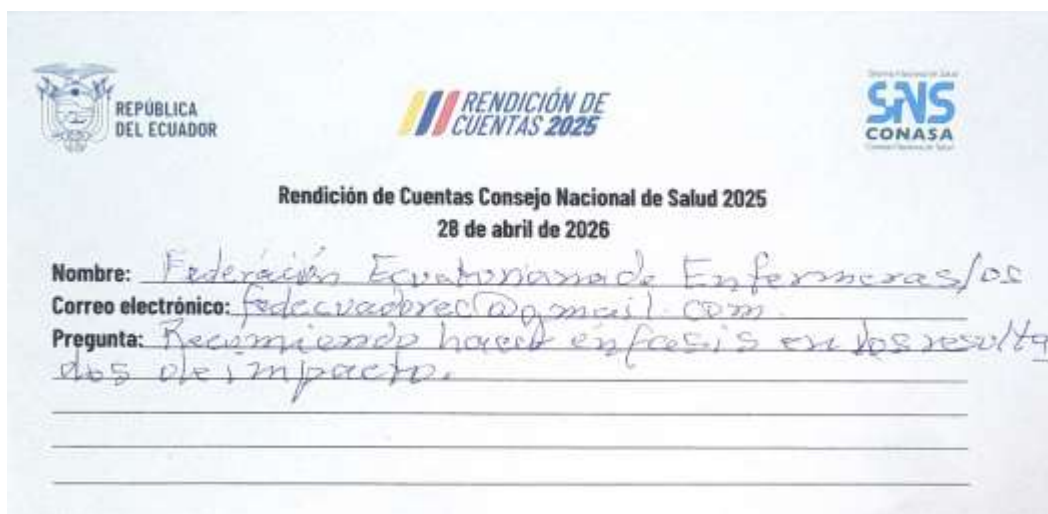 REPÚBLICA
DEL ECUADOR
RENDICIÓN DE
CUENTAS 2025
SNS
CONASA
Rendición de Cuentas Consejo Nacional de Salud 2025
28 de abril de 2026
Nombre: Federación Ecuatoriana de Enfermeras/os
Correo electrónico: fedecuadorec@gmail.com
Pregunta: Recomiendo hacer énfasis en los resulta
dos de impacto.